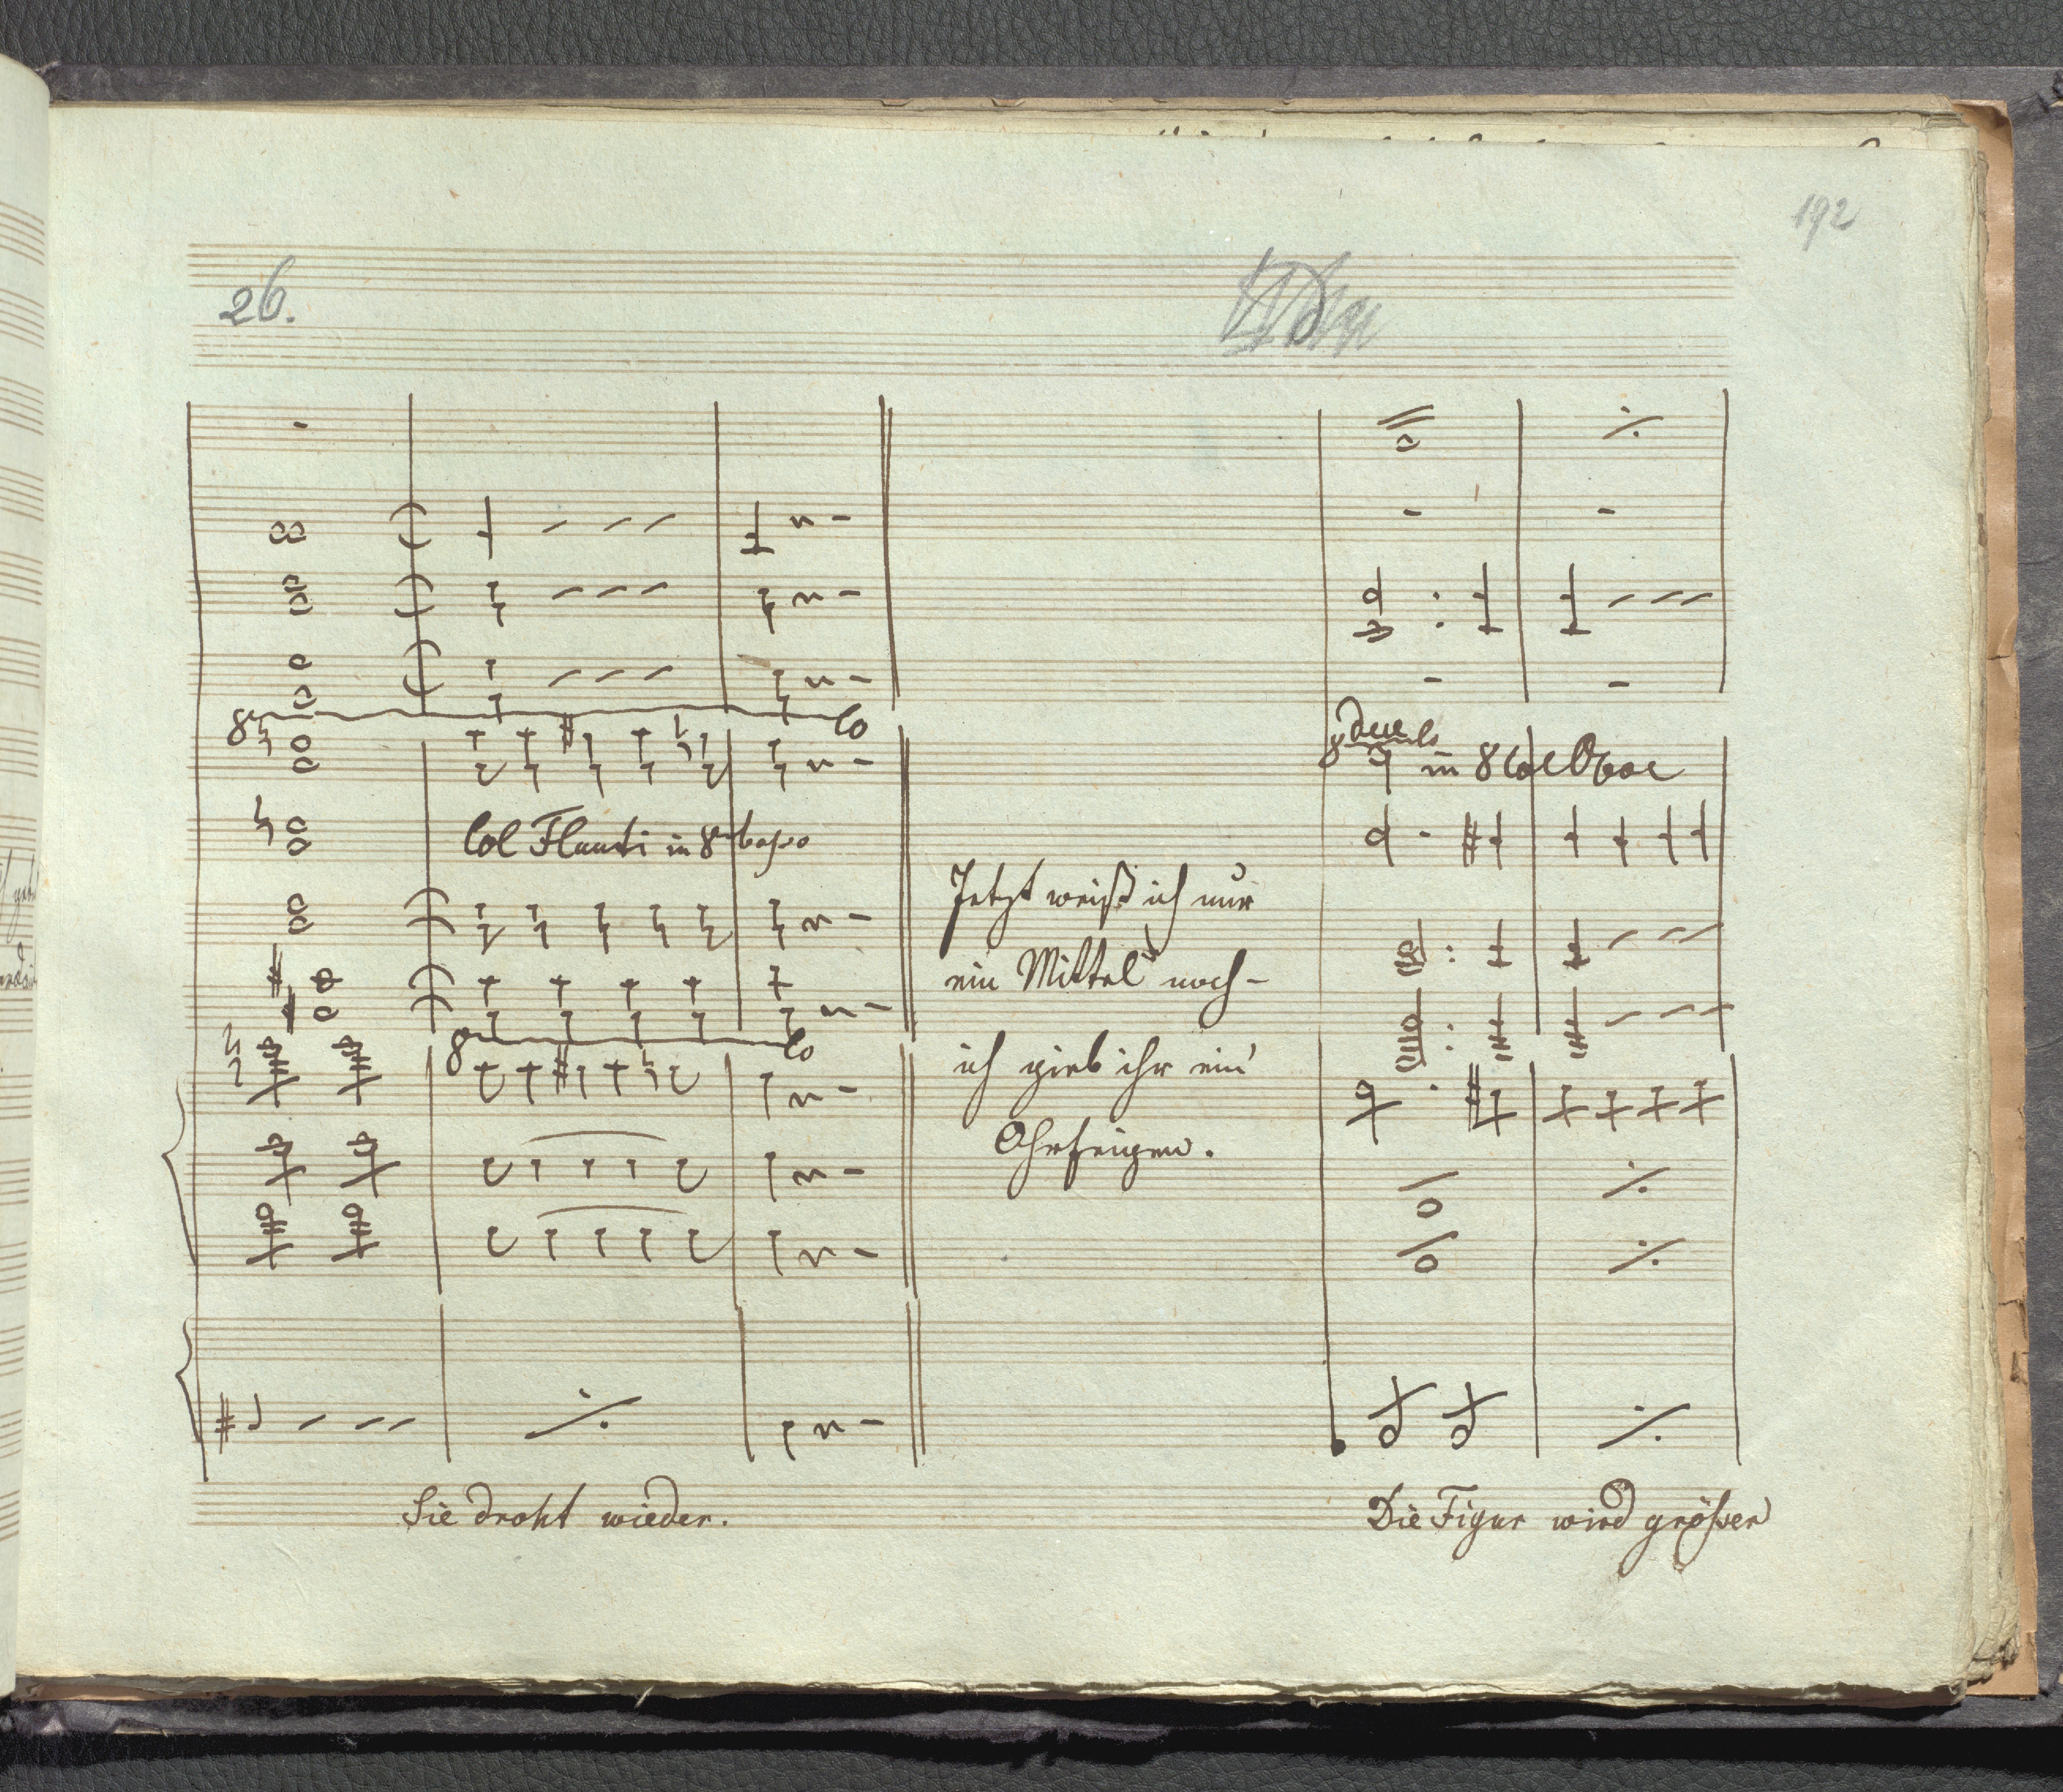 192
26.
8va
lo
col Flauti in 8va basso
8
lo
Jetzt weiß ich nur
ein Mittel noch-
ich gieb ihr ein'
Ohrfeigen.
due
in 8 Col Oboe
Sie droht wieder.
Die Figur wird größer